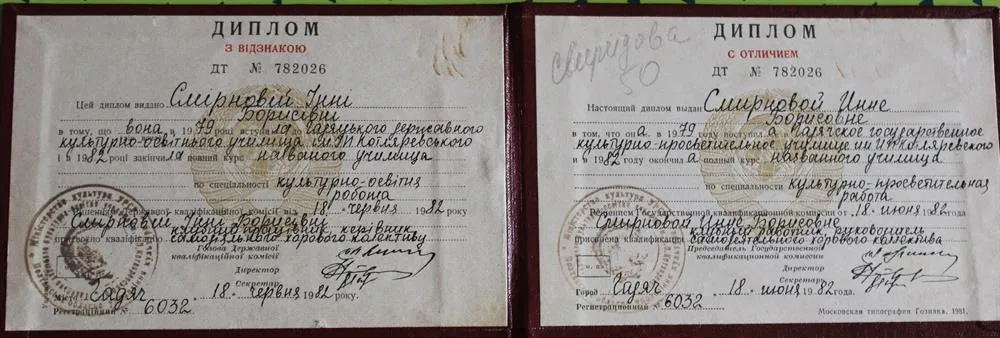 ДИПЛОМ
З ВІДЗНАКОЮ
ДТ № 782026
Цей диплом видано Смірновій Інні
Борисівні
в тому, що вона в 1979 році вступила Гадяцького державного
культурно-освітнього училища ім. І.П. Котляревського
і в 1982 закінчила повний курс названого училища
по спеціальності культурно-освітня
робота
Рішенням Державної кваліфікаційної комісії від 18 червня 1982 року
Смірновій Інні Борисівні
присвоєно кваліфікацію клубний працівник керівник
самодіяльного хорового колективу
Голова Державної
кваліфікаційної комісії
Директор
Секретар
Місто Гадяч 18 червня 1982 року.
Реєстраційний № 6032
ДИПЛОМ
С ОТЛИЧИЕМ
ДТ № 782026
Свиридова
50
Настоящий диплом выдан Смирновой Инне
Борисовне
в том, что она в 1979 году поступила Гадячское государственное
культурно-просветительное училище им. И.П. Котляревского
и в 1982 году окончила полный курс названного училища
по специальности культурно-просветительная
работа
Решением Государственной квалификационной комиссии от 18 июня 1982 года
Смирновой Инне Борисовне
присвоена квалификация клубный работник, руководитель
самодеятельного хорового коллектива
Председатель Государственной
квалификационной комиссии
М. П.
Директор
Секретарь
Город Гадяч 18 июня 1982 года.
Регистрационный № 6032
Московская типография Гознака. 1981.